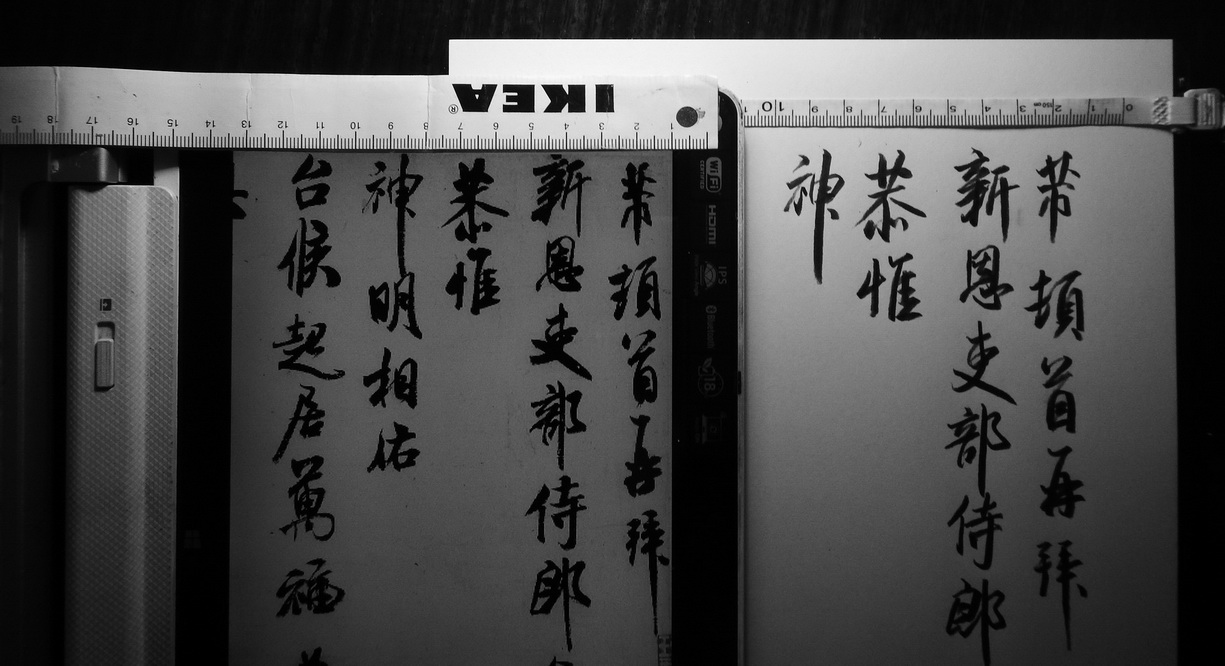 IKEA®
19 18 17 16 15 14 13 12 11 10 9 8 7 6 5 4 3 2 1
10 9 8 7 6 5 4 3 2 1 0
150cm
芾頓首再拜
新恩吏部侍郎
恭惟
神
WiFi
CERTIFIED
HDMI
IPS
Bluetooth
18
芾頓首再拜
新恩吏部侍郎
恭惟
神明相佑
台候起居萬福